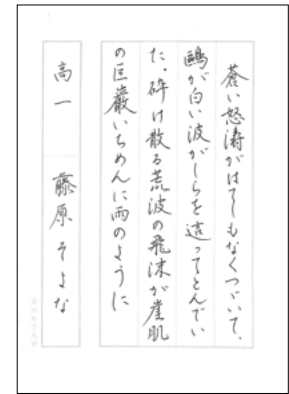 蒼い怒濤がはてしもなくつゞいて、
鷗が白い波がしらを這ってとんでい
た。砕け散る荒波の飛沫が崖肌
の巨巌いちめんに雨のように
高一　藤原そよな